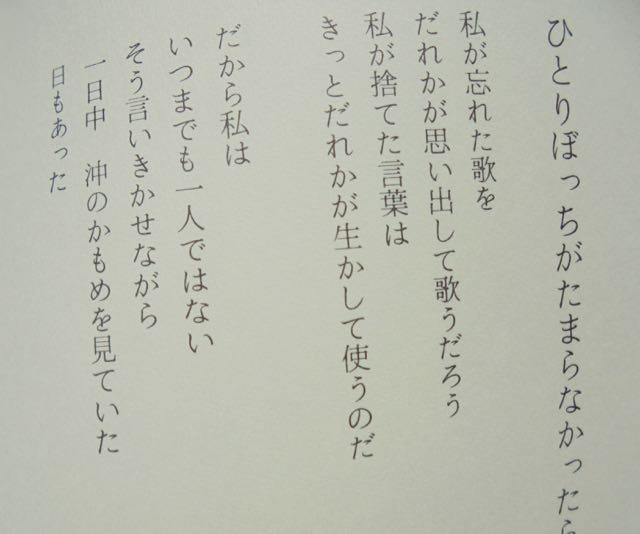 ひとりぼっちがたまらなかったら
私が忘れた歌を
だれかが思い出して歌うだろう
私が捨てた言葉は
きっとだれかが生かして使うのだ
だから私は
いつまでも一人ではない
そう言いきかせながら
一日中　沖のかもめを見ていた
日もあった